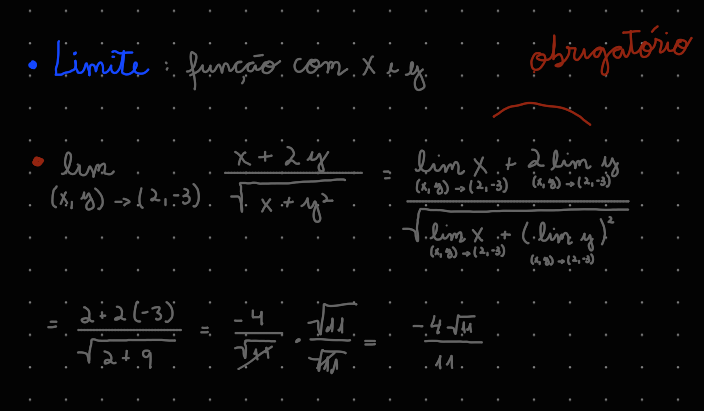 • Limite : função com x e y
obrigatório
• lim (x, y) → (2, -3) x + 2y / √(x + y²) = lim (x, y) → (2, -3) x + 2 lim (x, y) → (2, -3) y / √(lim (x, y) → (2, -3) x + (lim (x, y) → (2, -3) y)²)
= 2 + 2(-3) / √(2 + 9) = -4 / √11 · √11 / √11 = -4√11 / 11